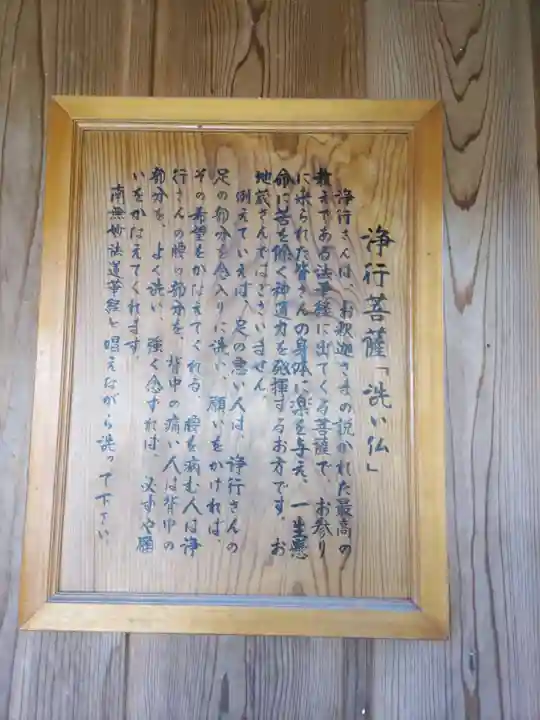 浄行菩薩「洗い仏」
浄行さんは、お釈迦さまの説かれた最高の
教えである法華経に出てくる菩薩で、お参り
に来られた皆さんの身体に楽を与え、一生懸
命に苦を除く神通力を発揮するお方です。お
地蔵さんではございません。
例えていえば、足の悪い人は、浄行さんの
足の部分を念入りに洗い、願いをかければ、
その希望をかなえてくれる、腰を病む人は浄
行さんの腰の部分を、背中の痛い人は背中の
部分を、よく洗い、強く念ずれば、必ずや願
いをかなえてくれます。
南無妙法蓮華経と唱えながら洗って下さい。